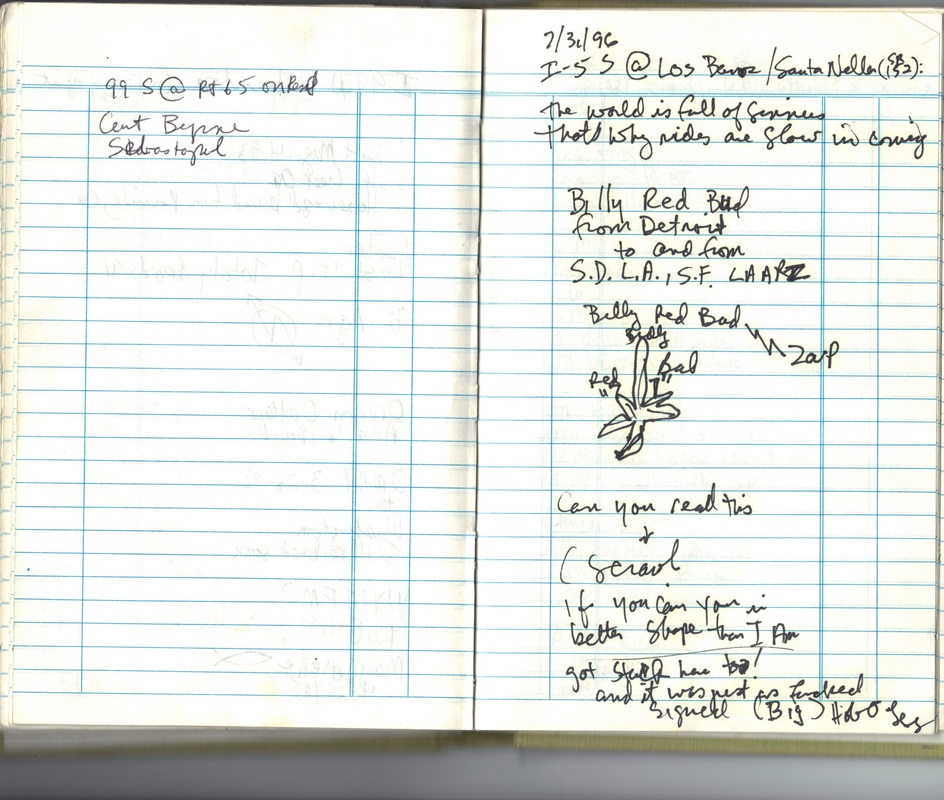 99 S @ Rt 65 onRamp
Cent Byrne
7/31/96
I-5 S @ Los Banos / Santa Nella (152):
the world is full of Sinners
that's why rides are slow in coming
Billy Red Bud
from Detroit
to and from
S.D. L.A., S.F. LAARZ
Billy Red Bad
Zap
Billy
Bad
Red
Can you read this
(Scrawl
if you can your in
better Shape than I Am
got Stuck here too!
and it was just as fucked
Signed (Big) Hobo